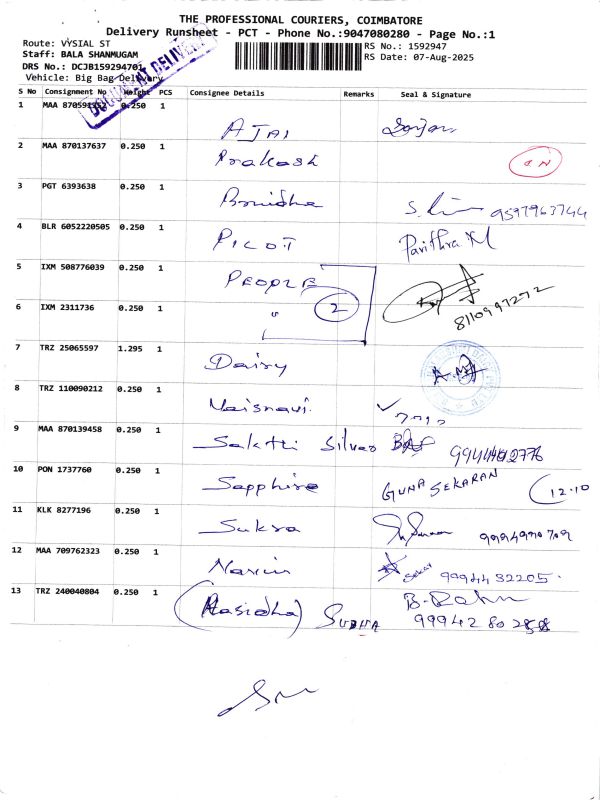 THE PROFESSIONAL COURIERS, COIMBATORE
Delivery Runsheet - PCT - Phone No.:9047080280 - Page No.:1
Route: VYSIAL ST
Staff: BALA SHANMUGAM
DRS No.: DCJB159294701
Vehicle: Big Bag Delivery
RS No.: 1592947
RS Date: 07-Aug-2025
DOCUMENT DELIVERY
S No Consignment No Weight PCS Consignee Details Remarks Seal & Signature
1 MAA 870591 0.250 1 AJAI
2 MAA 870137637 0.250 1 Prakash
3 PGT 6393638 0.250 1 9597963744
4 BLR 6052220505 0.250 1 PILOT Pavithra M
5 IXM 508776039 0.250 1 PEOPLE
6 IXM 2311736 0.250 1 " 2 8110997272
7 TRZ 25065597 1.295 1 Dairy
8 TRZ 110090212 0.250 1 Vaisnavi.
9 MAA 870139458 0.250 1 Sakthi Silver
10 PON 1737760 0.250 1 Sapphire GUNA SEKARAN 12.10
11 KLK 8277196 0.250 1 Sukra 9994990709
12 MAA 709762323 0.250 1 Sekar 9994432205.
13 TRZ 240040804 0.250 1 (Hasidha) SUBHA